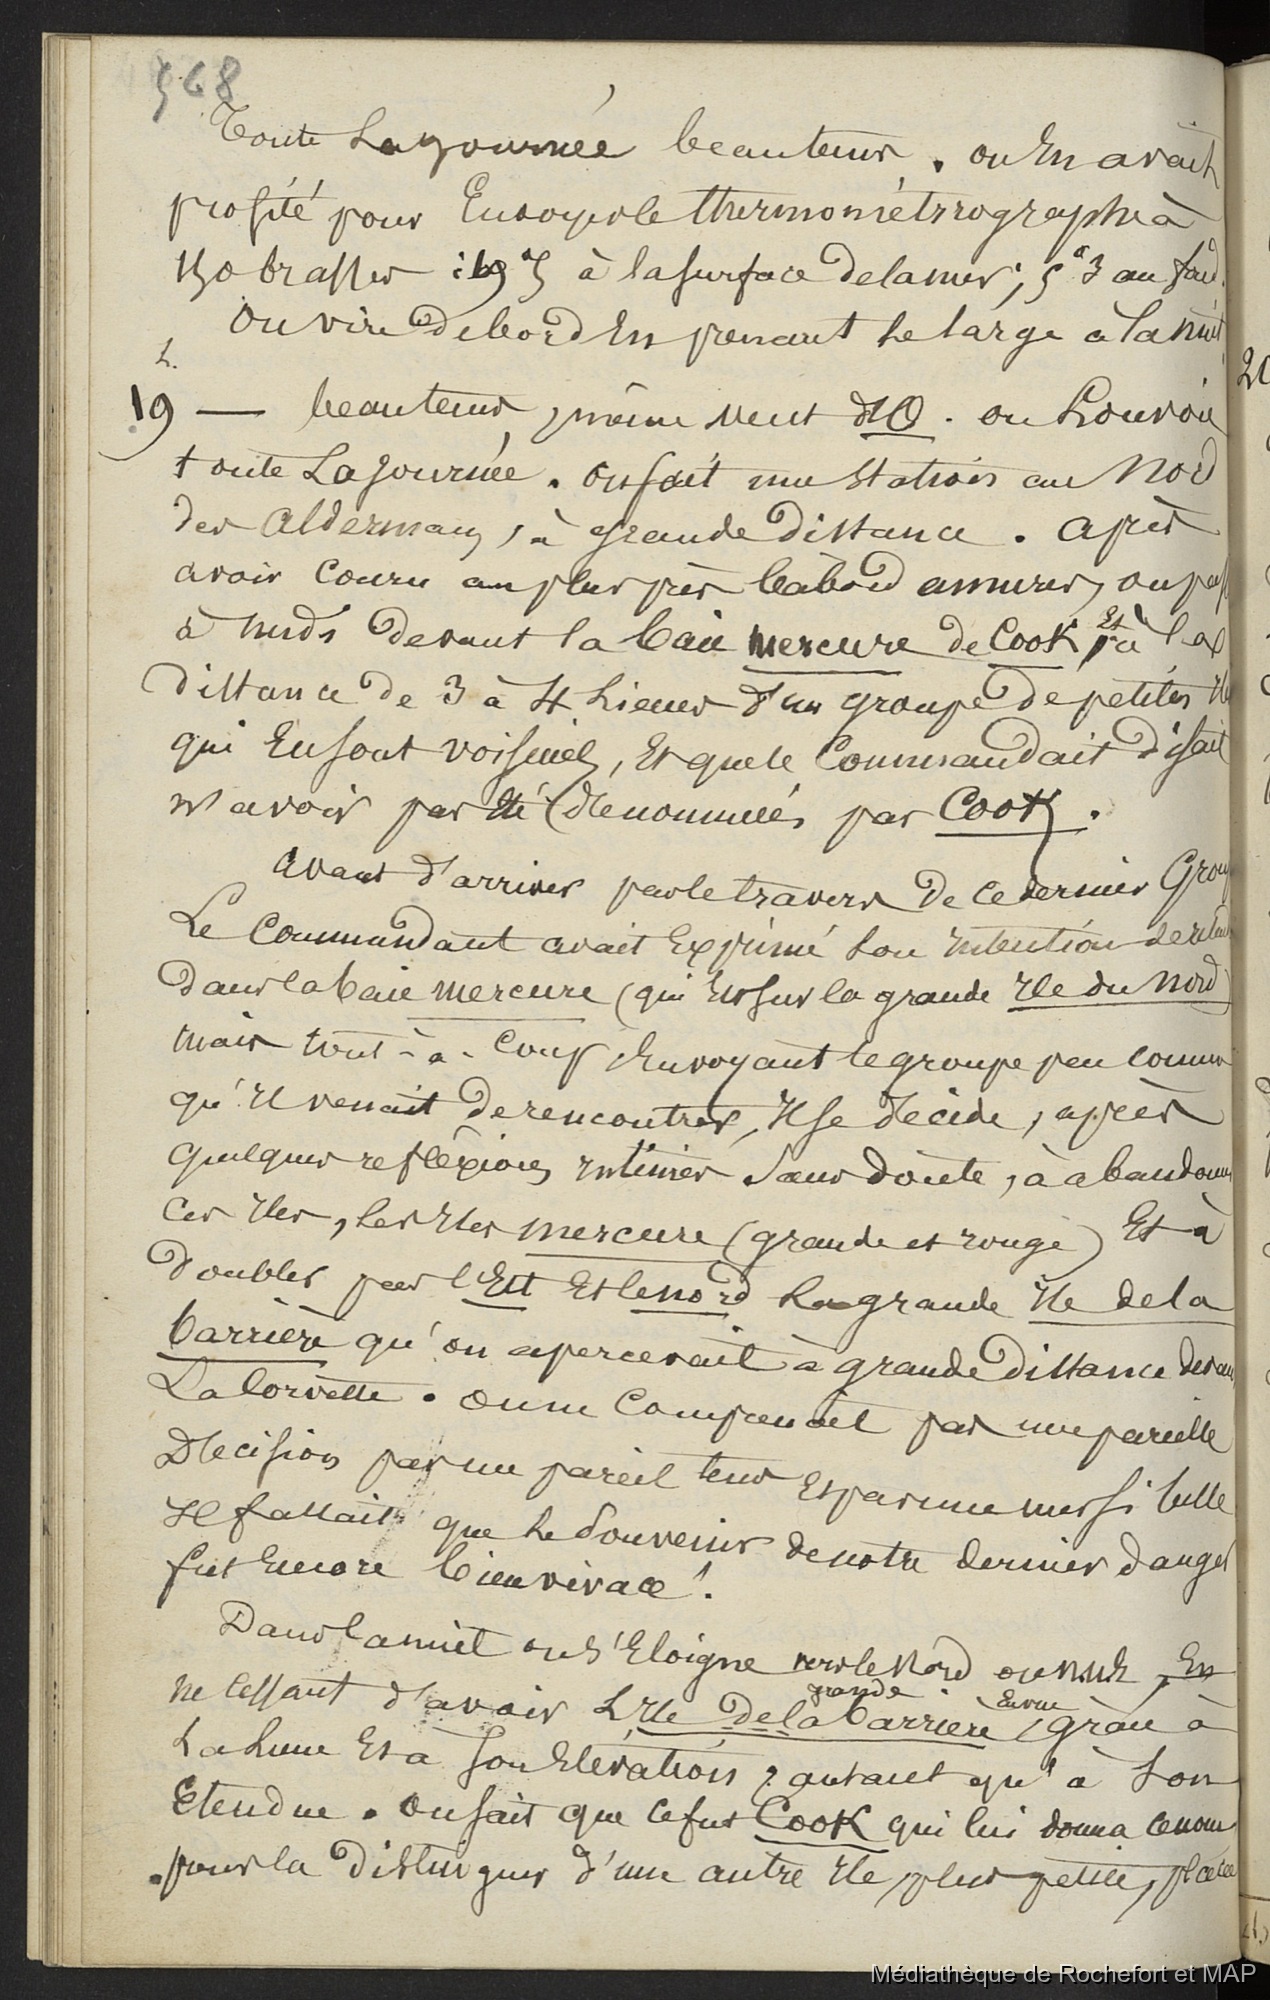 568
Toute la journée beau tems. on En avait
profité pour Envoyer le thermométrographe à
à la surface de la mer; 5° 3 au fond.
on vire de bord En prenant le large à la nuit
L.
19 — beau tems, même vent d'O. on Louvoie
toute La journée. on fait une Station au Nord
des Aldermans, à grande Distance. après
avoir couru au plus près babord amures, on passe
à midi devant la baie mercure de Cook, Et à la
Distance de 3 à 4 Lieues d'un groupe de petites Iles
qui En sont voisines, Et que le Commandant disait
n'avoir pas été dénommées par Cook.
avant d'arriver par le travers de ce dernier Groupe
Le Commandant avait Exprimé son intention de relâcher
dans la baie mercure (qui Est sur la grande Ile du Nord)
mais tout-à-coup, En voyant le groupe peu connu
qu'il venait de rencontrer, il se décide, après
quelques reflexions intimes sans doute, à abandonner
ces Iles, les Iles mercure (grande et rouge) Et à
doubler par l'Est Et le nord la grande Ile de la
barrière qu'on apercevait à grande Distance devant
La Corvette. on ne comprenait pas une pareille
Décision par un pareil tems Et par une mer si belle
Il fallait que le Souvenir de notre dernier danger
fut Encore bien vivace!
Dans la nuit on s'Eloigne vers le Nord En
ne cessant d'avoir L'Ile de la grande barrière En vue, grâce à
La Lune Et à son Elévation, autant qu'à son
Etendue. on sait que ce fut Cook qui lui donna ce nom
pour la distinguer d'une autre Ile plus petite, placée
20
Médiathèque de Rochefort et MAP